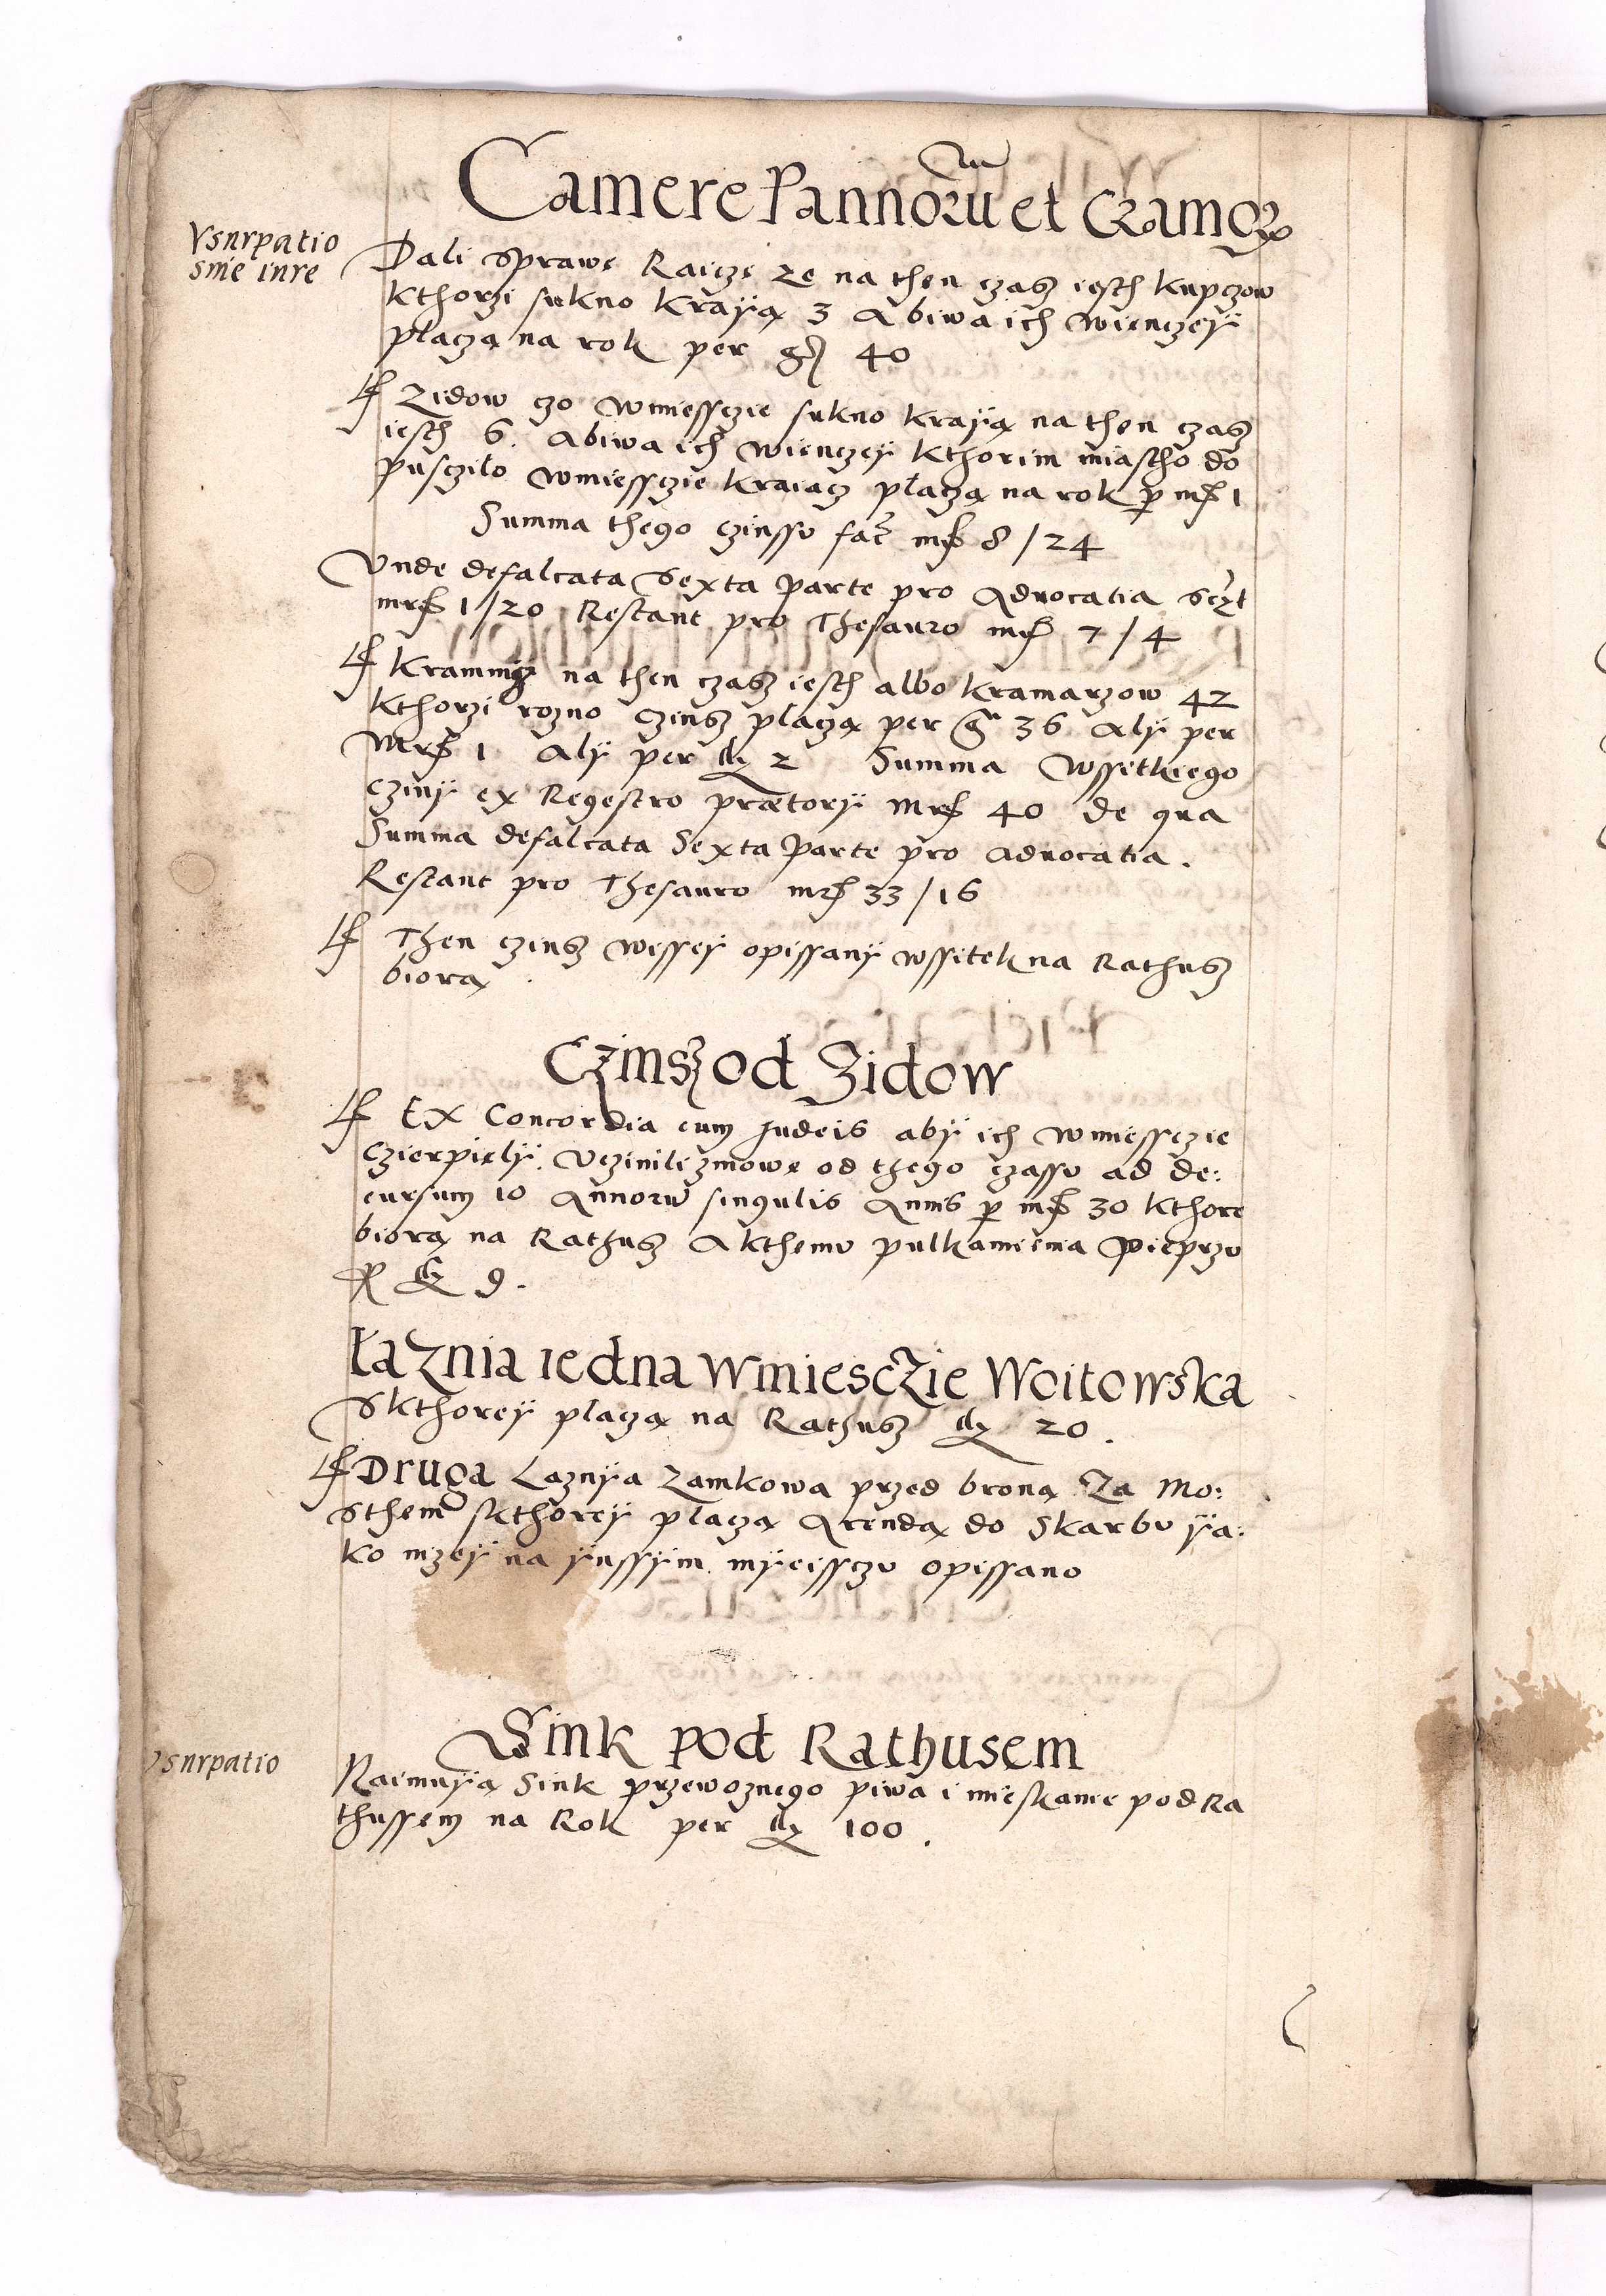 Camere Pannorum et Cramorum
Vsurpatio
sine iure
Dali Sprawę Raicze ze na then czasz iesth kupczow
kthorzi sukno kraÿą 3 A biwa ich wienczeÿ
płaczą na rok per gr 40
It Zidow czo wmiessczie sukno kraÿą na then czasz
iesth 6. Abiwa ich wienczeÿ kthorim miastho do
pusczilo wmiessczie kraiacz płaczą na rok p mrc 1
Summa thego czinssu fac mrc 8/24
Vnde defalcata Sexta Parte pro Aduocatia
mrc 1/20 Restant pro Thesauro mrc 7/4
It na then czasz iesth albo kramarzow 42
kthorzi rozno czinsz płaczą per gr 36 Alÿ per
Mrc 1 Alÿ per fl 2 Summa wssitkiego
czinÿ ex Regestro prætorÿ Mrc 40 de qua
Summa defalcata Sexta Parte pro aduocatia.
Restant pro Thesauro mrc 33/16
It Then czinsz wisseÿ opissanÿ wssitek na Rathusz
biorą
Czinsz od Zidow
It Ex Concordia cum Judeis abÿ ich wmiessczie
czierpielÿ. Vczinili zmowę od thego czassu ad de:
cursum 10 Annoru singulis Annis p mrc 30 kthore
biorą na Rathusz Akthemu pulkamienia pieprzu
p fl 9.
Łaznia iedna wmiesczie Woitowska
Skthoreÿ płaczą na Rathusz fl 20.
It Druga Laznÿa Zamkowa przed broną Za Mo:
sthem skthoreÿ płaczą Arendą do Skarbu ÿa:
ko nizeÿ na ÿnssÿm mÿeissczu opissano
Sink pod Rathusem
Vsurpatio
Naimuÿą Sink przewoznego piwa i mieskanie pod Ra
thussem na Rok per fl 100.